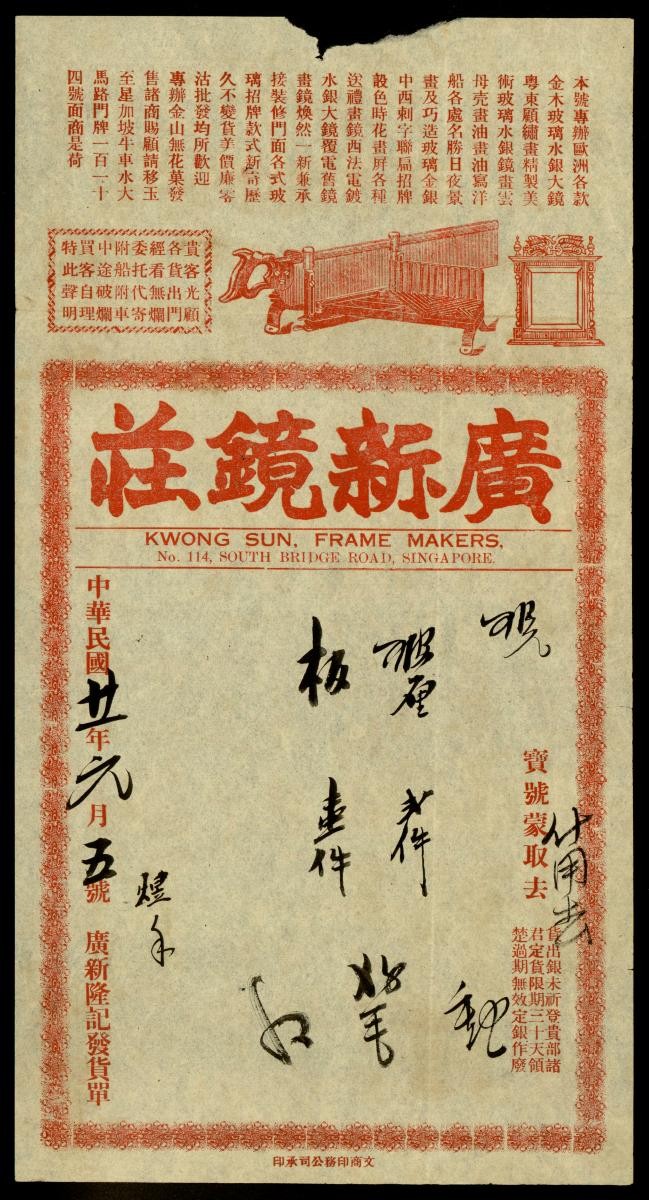 本號專辦歐洲各款
金木玻璃水銀大鏡
粵東顧繡畫精製美
術玻璃水銀鏡畫雲
母壳畫油畫油寫洋
船各處名勝日夜景
畫及巧造玻璃金銀
中西刺字聯扁招牌
設色時花畫屏各種
送禮畫鏡西法電鍍
水銀大鏡覆電舊鏡
畫鏡煥然一新兼承
接裝修門面各式玻
璃招牌款式新奇歷
久不變貨美價廉零
沽批發均所歡迎
專辦金山無花菓發
售諸商賜顧請移玉
至星加坡牛車水大
馬路門牌一百一十
四號面商是荷
貴客光顧
各貨出門
經看無爛
委托代寄
附船附車
中途破爛
買客自理
特此聲明
廣新鏡莊
KWONG SUN, FRAME MAKERS,
No. 114, SOUTH BRIDGE ROAD, SINGAPORE.
寶號蒙取去
貨出銀未祈登貴部諸
君定貨限期三十天領
楚過期無效定銀作廢
板
壹件
中華民國廿年元月五號 廣新隆記發貨單
文商印務公司承印